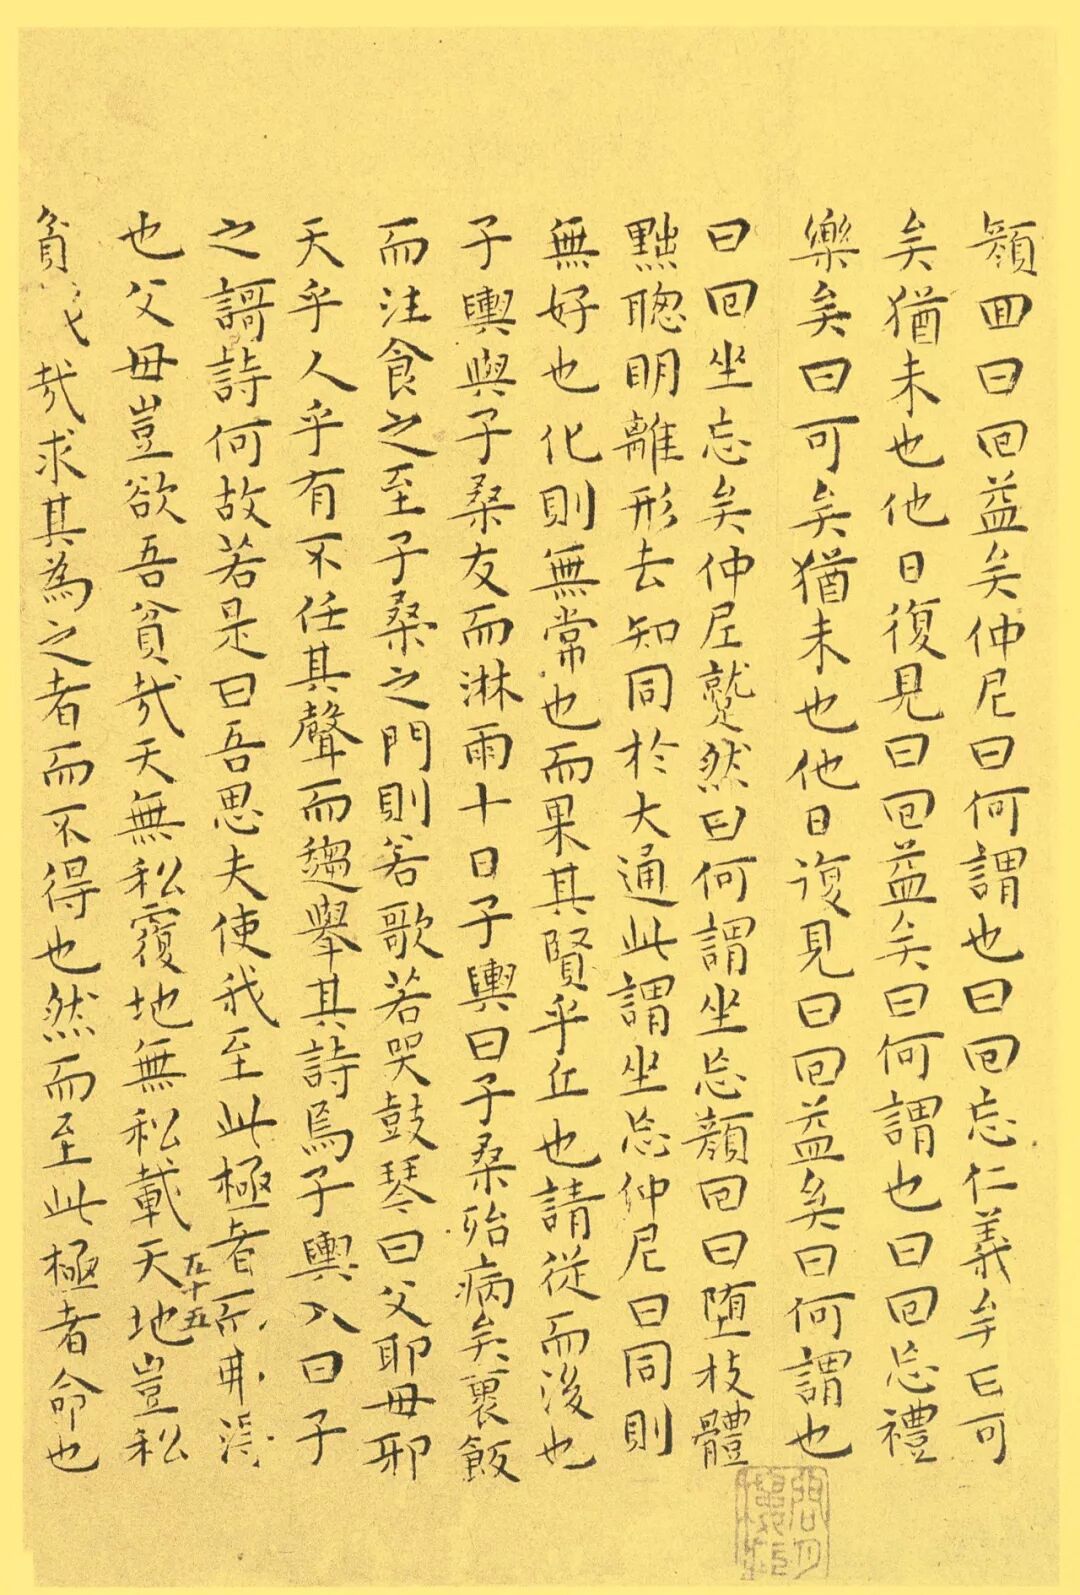 顏回曰回益矣仲尼曰何謂也曰回忘仁義矣曰可
矣猶未也他日復見曰回益矣曰何謂也曰回忘禮
樂矣曰可矣猶未也他日復見曰回益矣曰何謂也
曰回坐忘矣仲尼蹵然曰何謂坐忘顏回曰堕枝體
黜聰明離形去知同於大通此謂坐忘仲尼曰同則
無好也化則無常也而果其賢乎丘也請從而後也
子輿與子桑友而淋雨十日子輿曰子桑殆病矣裹飯
而注食之至子桑之門則若歌若哭鼓琴曰父耶母邪
天乎人乎有不任其聲而趨舉其詩焉子輿入曰子
之謌詩何故若是曰吾思夫使我至此極者而弗得
也父母豈欲吾貧哉天無私覆地無私載天地豈私
貧哉求其為之者而不得也然而至此極者命也
五十五